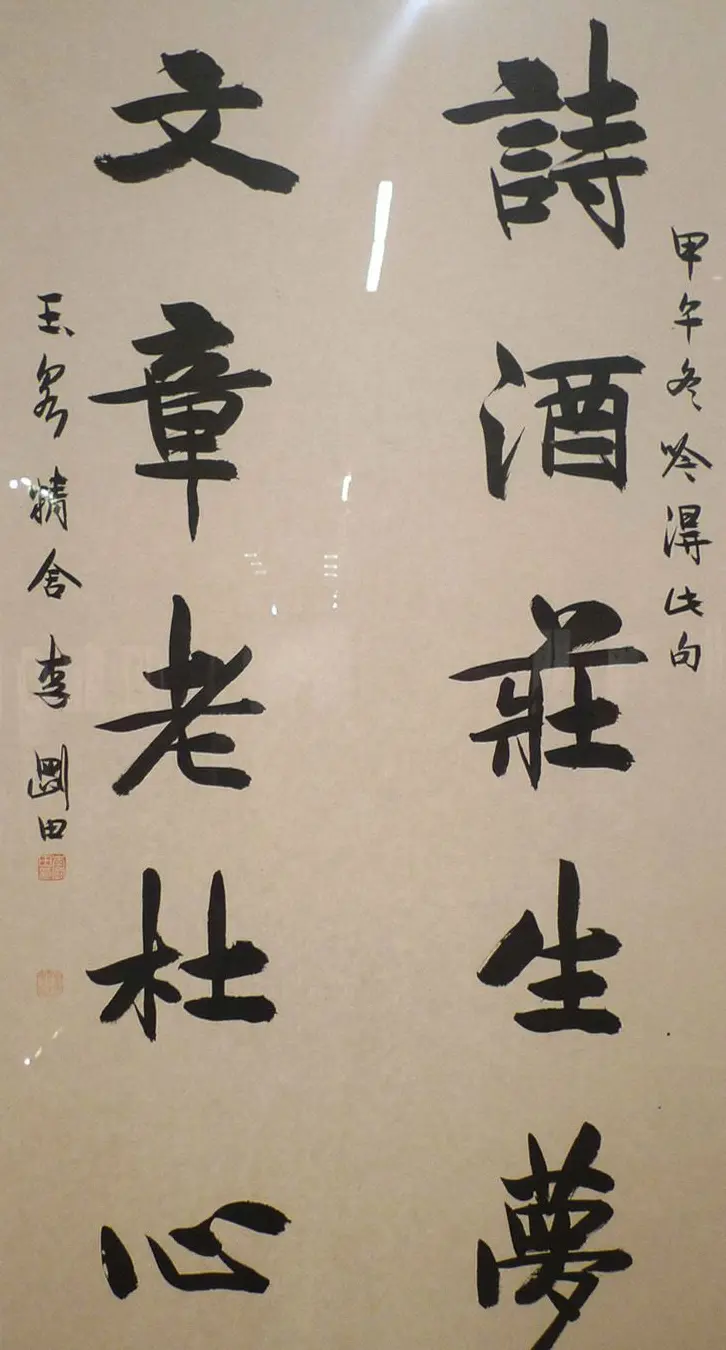 甲午冬吟得此句
詩酒莊生夢
文章老杜心
玉泉精舍李劉田